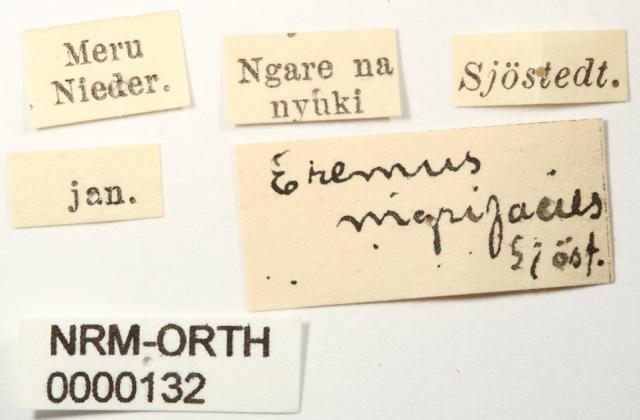 Meru
Nieder.
Ngare na
nyuki
Sjöstedt.
jan.
Eremus
nigrifacies
Sjöst.
NRM-ORTH
0000132